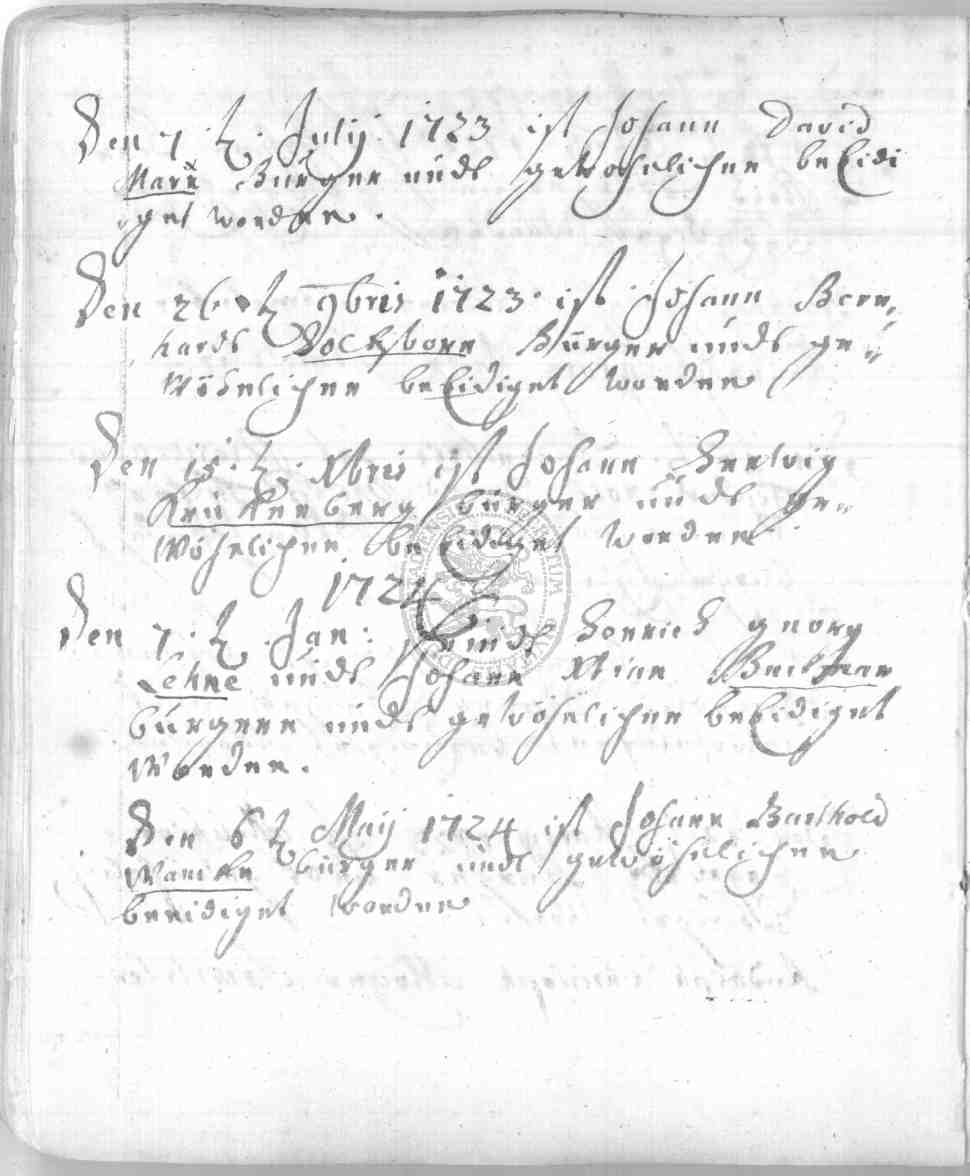 Den 7. t. Julij. 1723 ist Johann David
Marx Bürger und gewöhnlicher beEidi
get worden.
Den 26 t 9bris 1723. ist Johann Bern„
hard Bockhorn Bürger und ge„
wöhnlicher beEidiget worden
Den 15. t. Xbris ist Johann Hertwig
Krukenberg bürger und ge„
wöhnlicher beEidiget worden
1724
Den 7. t. Jan: sind Henrich georg
Lehne und Johann Xtian
bürgere und gewöhnlicher beEidiget
worden.
Den 6 t Maij 1724 ist Johann Barthold
Warneke bürger und gewöhnlicher
beeidiget worden